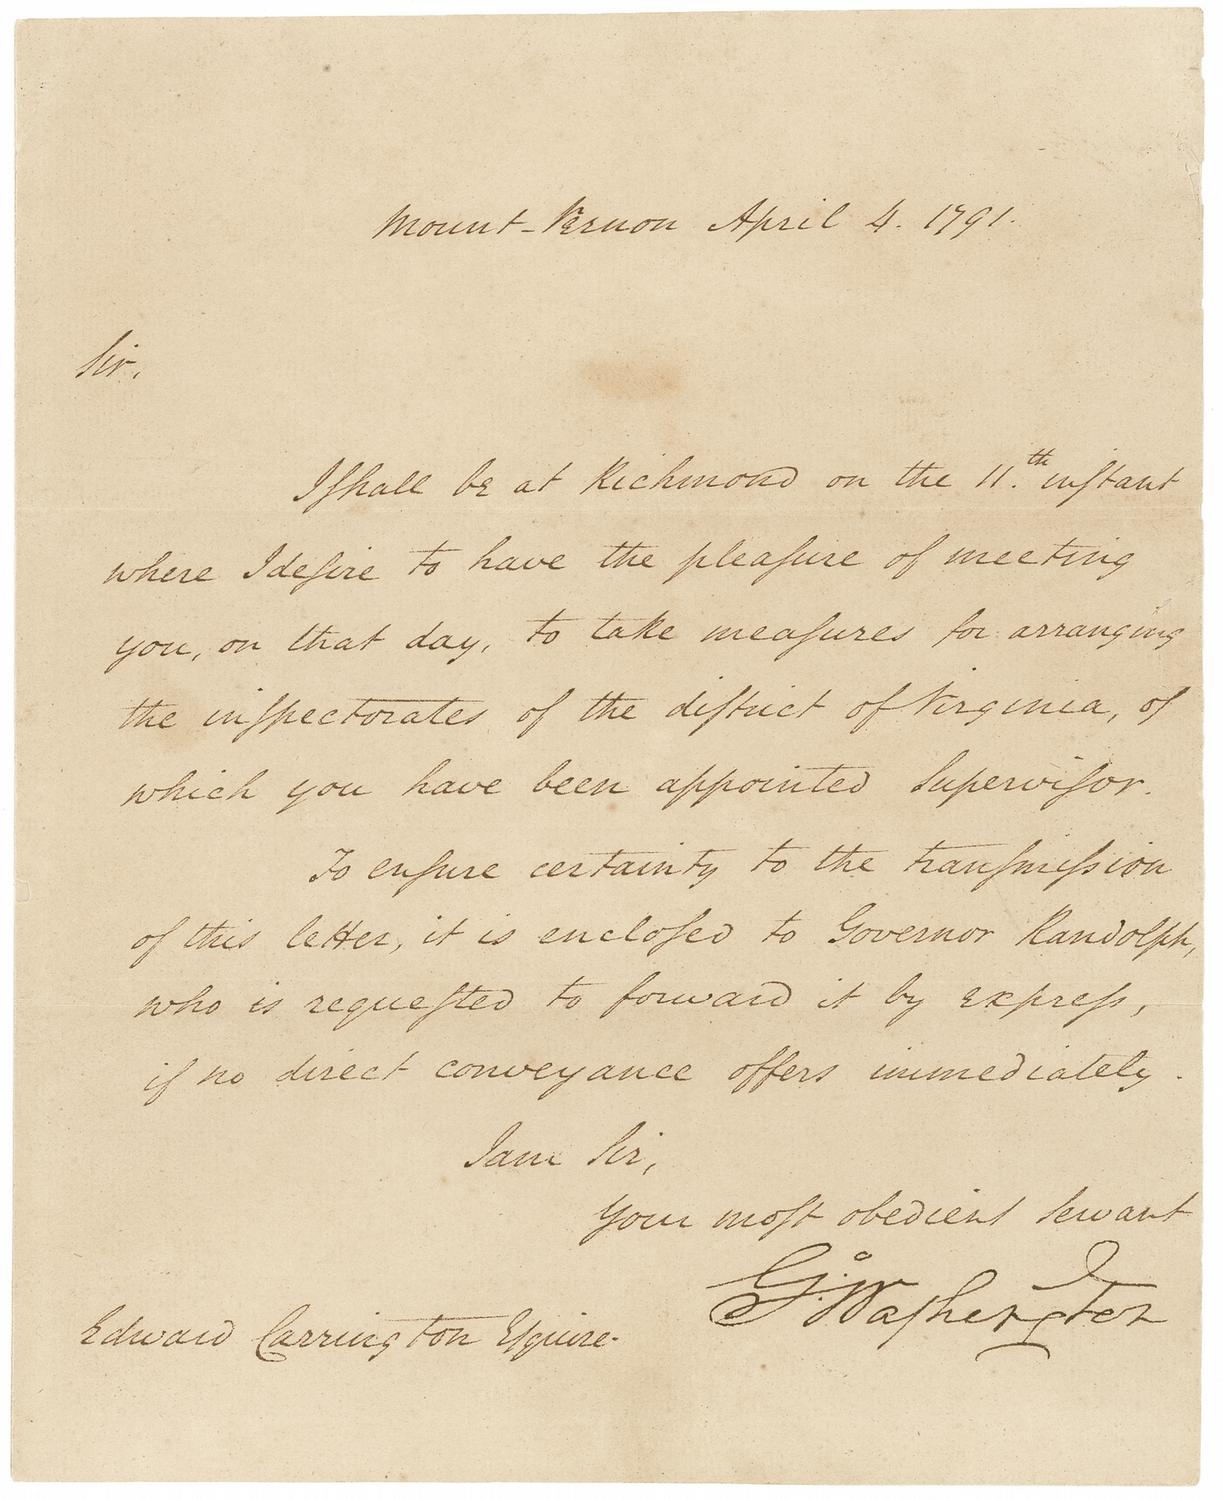 Mount-Vernon April 4. 1791.
Sir,
I ſhall be at Richmond on the 11.th inſtant
where I deſire to have the pleaſure of meeting
you, on that day, to take meaſures for arranging
the inſpectorates of the diſtrict of Virginia, of
which you have been appointed Superviſor.
To enſure certainty to the tranſmiſsion
of this letter, it is encloſed to Governor Randolph,
who is requeſted to forward it by expreſs,
if no direct conveyance offers immediately.
I am Sir,
Your moſt obedient Servant
Go: Waſhington
Edward Carrington Eſquire.